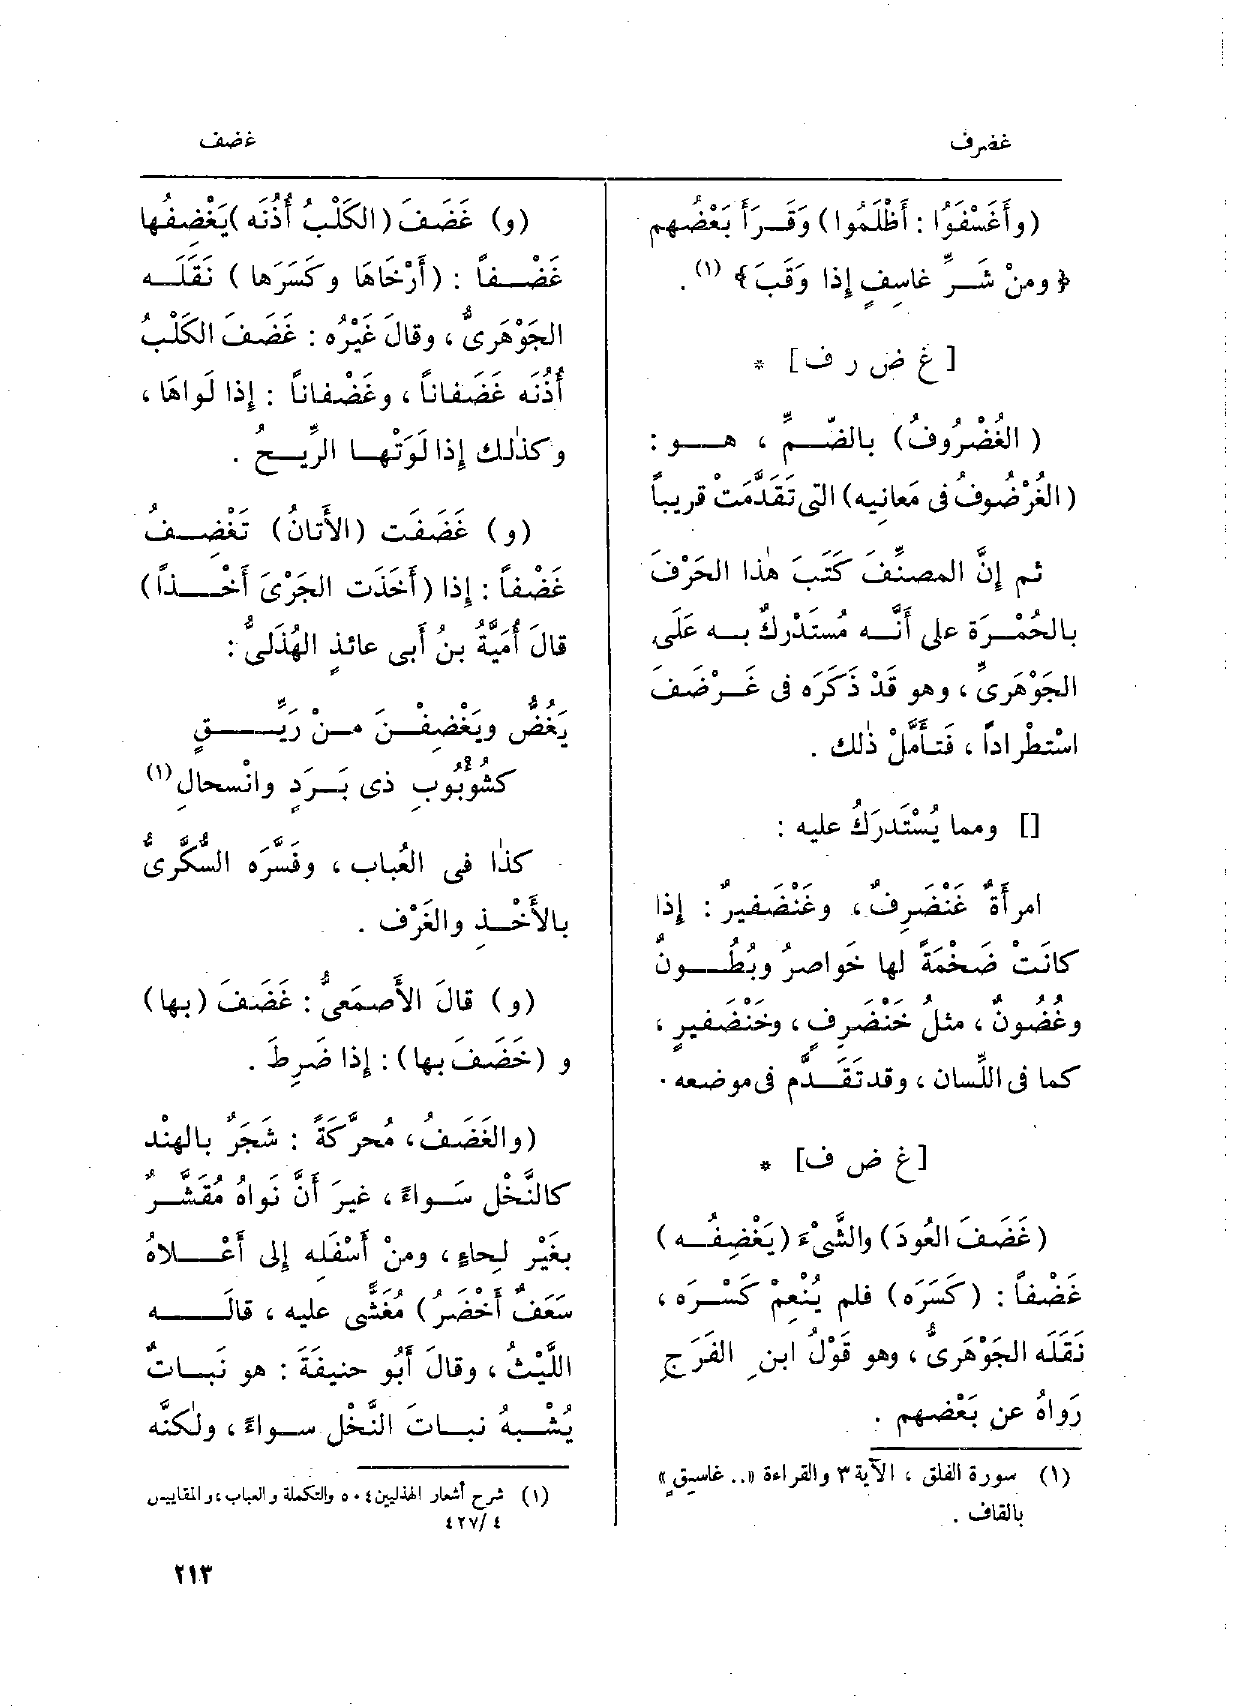 غضرف
غضف
(وأَغْسَفُوا : أَظْلَمُوا) وَقَـرَأَ بَعْضُهم
﴿ومنْ شَـرِّ غاسِفٍ إِذا وَقَبَ﴾ (١) .
[ غ ض ر ف ] *
( الغُضْرُوفُ) بالضّـمِّ ، هـو :
(الغُرْضُوفُ فى مَعانِيه) التى تَقَدَّمَتْ قريباً
ثم إِنَّ المصنِّفَ كَتَبَ هٰذا الحَرْفَ
بالحُمْرَة على أَنَّـه مُستَدْركٌ بـه عَلَى
الجَوْهَرىِّ ، وهو قَدْ ذَكَرَه فى غَـرْضَفَ
اسْتطْراداً ، فَتـأَمَّلْ ذٰلك .
[] ومما يُسْتَدرَكُ عليه :
امرأَةٌ غَنْضَرِفٌ ، وغَنْضَفيرٌ : إِذا
كانَتْ ضَخْمَةً لها خَواصرُ وبُطُـونٌ
وغُضُونٌ ، مثلُ خَنْضَرِفٍ ، وخَنْضَفيرٍ ،
كما فى اللِّسان ، وقد تَقَـدَّم فى موضعه .
[ غ ض ف ] *
(غَضَفَ العُودَ) والشَّىْءَ (يَغْضِفُـه )
غَضْفاً : (كَسَرَه) فلم يُنْعِمْ كَسْـرَه ،
نَقَلَه الجَوْهَرىُّ ، وهو قَوْلُ ابن الفَرَجِ
رَواهُ عن بَعْضهم .
(١) سورة الفلق ، الآية ٣ والقراءة «.. غاسِقٍ»
بالقاف .
(و) غَضَفَ (الكَلْبُ أُذُنَه )يَغْضفُها
غَضْـفاً : (أَرْخَاهَا وكَسَرَها ) نَقَلَـه
الجَوْهَرىُّ ، وقالَ غَيْرُه : غَضَفَ الكَلْبُ
أُذُنَه غَضَفاناً ، وغَضْفاناً : إِذا لَواهَا ،
وكذٰلك إِذا لَوَتْهـا الرِّيـحُ .
(و) غَضَفَت (الأَتانُ) تَغْضِـفُ
غَضْفاً : إِذا (أَخَذَت الجَرْىَ أَخْـذاً)
قالَ أُمَيَّةُ بنُ أَبى عائذٍ الهُذَلىُّ :
يَغُضُّ ويَغْضِفْـنَ مـنْ رَيِّـقٍ
كشُؤْبُوبِ ذى بَـرَدٍ وانْسحالِ (١)
كذٰا فى العُباب ، وفَسَّرَه السُّكَّرىُّ
بالأَخْـذِ والغَرْف .
(و) قالَ الأَصمَعىُّ : غَضَفَ (بها)
و (خَضَفَ بها) : إِذا ضَرِطَ .
(والغَضَفُ ، مُحرَّكَةً : شَجَرٌ بالهِنْد
كالنَّخْل سَـواءً ، غيرَ أَنَّ نَواهُ مُقَشَّـرٌ
بغَيْر لِحاءٍ ، ومنْ أَسْفَلِه إِلى أَعْـلاهُ
سَعَفٌ أَخْضَرُ) مُغَشًّى عليه ، قالَـه
اللَّيْثُ ، وقالَ أَبُو حنيفَةَ : هو نَبـاتٌ
يُشْبـهُ نبـاتَ النَّخْل سـواءً ، ولٰكنَّه
(١) شرح أشعار الهذليين ٥٠٤ والتكملة والعباب ، والمقاييس
٤/ ٤٢٧
٢١٣